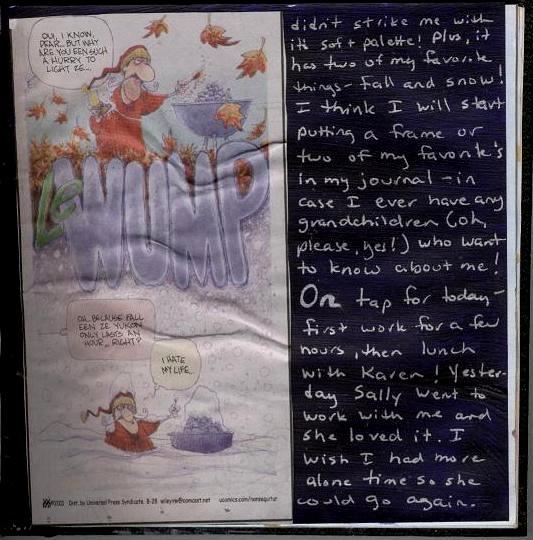 OUI, I KNOW,
DEAR... BUT WHY
ARE YOU EEN SUCH
A HURRY TO
LIGHT ZE...
Le WUMP
OH... BECAUSE FALL
EEN ZE YUKON
ONLY LASTS AN
HOUR... RIGHT?
I HATE
MY LIFE...
Dist. by Universal Press Syndicate 8-28 wileyink@comcast.net ucomics.com/nonsequitur
didn't strike me with
its soft palette! Plus, it
has two of my favorite
things - fall and snow!
I think I will start
putting a frame or
two of my favorite's
in my journal - in
case I ever have any
grandchildren (oh,
please, yes!) who want
to know about me!
On tap for today -
first work for a few
hours, then lunch
with Karen! Yester-
day Sally went to
work with me and
she loved it. I
wish I had more
alone time so she
could go again.